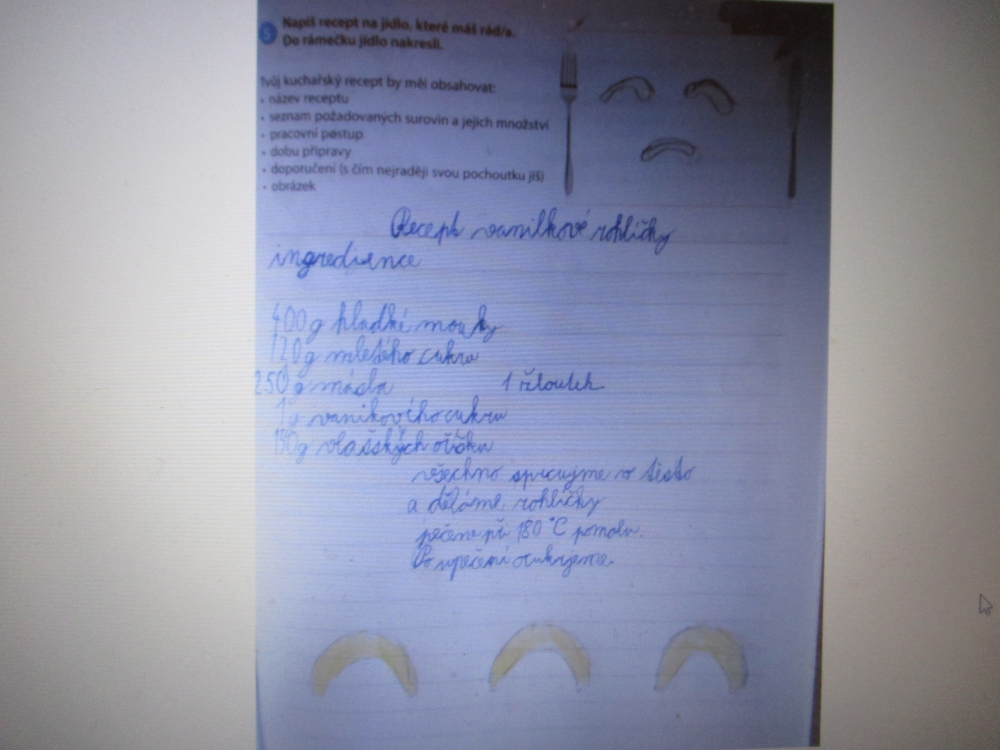 5 Napiš recept na jídlo, které máš rád/a.
Do rámečku jídlo nakresli.
Tvůj kuchařský recept by měl obsahovat:
• název receptu
• seznam požadovaných surovin a jejich množství
• pracovní postup
• dobu přípravy
• doporučení (s čím nejraději svou pochoutku jíš)
• obrázek
Recept vanilkové rohlíčky
ingredience
400g hladké mouky
120g mletého cukru
250g másla 1 žloutek
1g vanikového cukru
g vlašských oříšku
všechno spracujme v těsto
a děláme rohlíčky
pečeme při 180 °C pomalu.
Po upečení ocukrujeme.